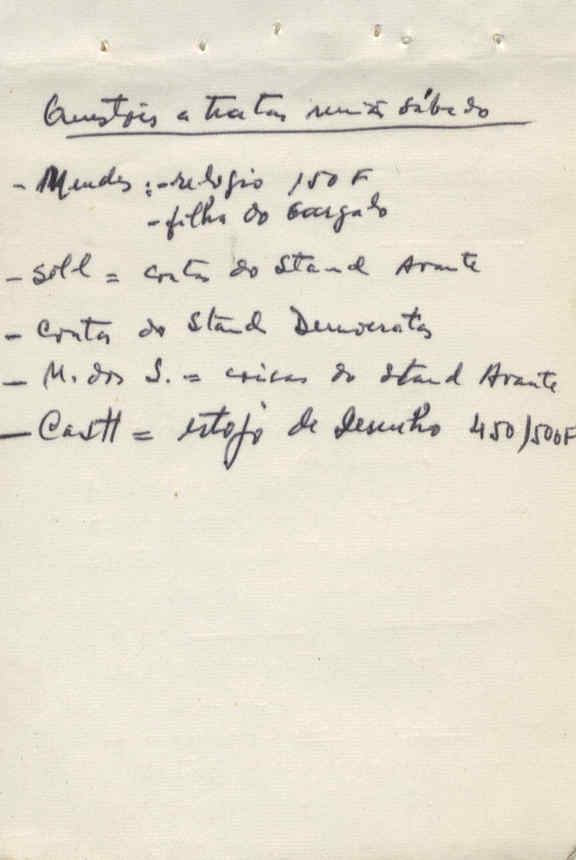 Questões a tratar reunião sábado
- Mendes : - relogio 150 F
- filha do Gargalo
- Soll = contas do Stand Avante
- Contas do Stand Democratas
- M. dos S. = coisas do stand Avante
- Castt = estojo de desenho 450/500F